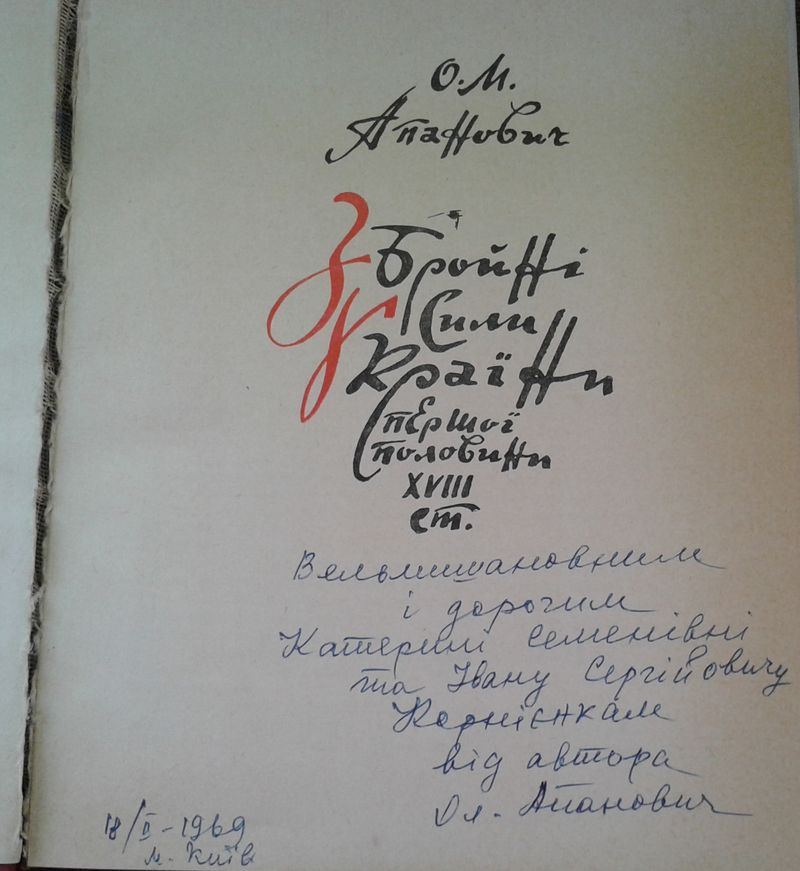 О. М.
Апанович
Збройні
Сили
України
першої
половини
XVIII
ст.
Вельмишановним
і дорогим
Катерині Семенівні
та Івану Сергійовичу
Корнієнкам
від автора
Ол. Апанович
18/II - 1969
м. Київ